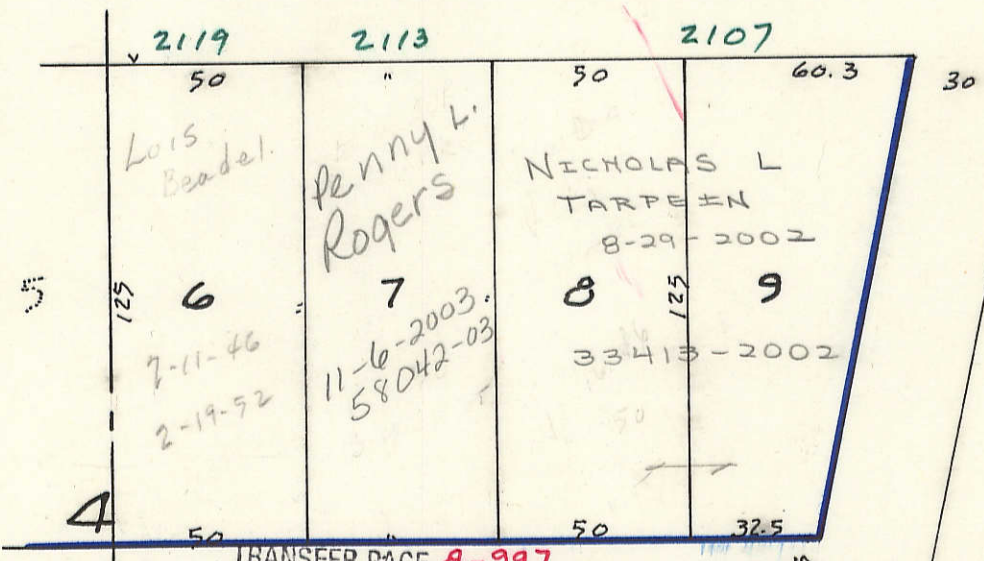 2119 2113 2107
v
50 " 50 60.3 30
Lois
Beadel.
Penny L.
Rogers
NICHOLAS L
TARPEIN
8-29-2002
5 125 6 " 7 8 125 9
7-11-46
2-19-52
11-6-2003.
58042-03
33413-2002
50
4
50 " 50 32.5
TRANSFER PAGE